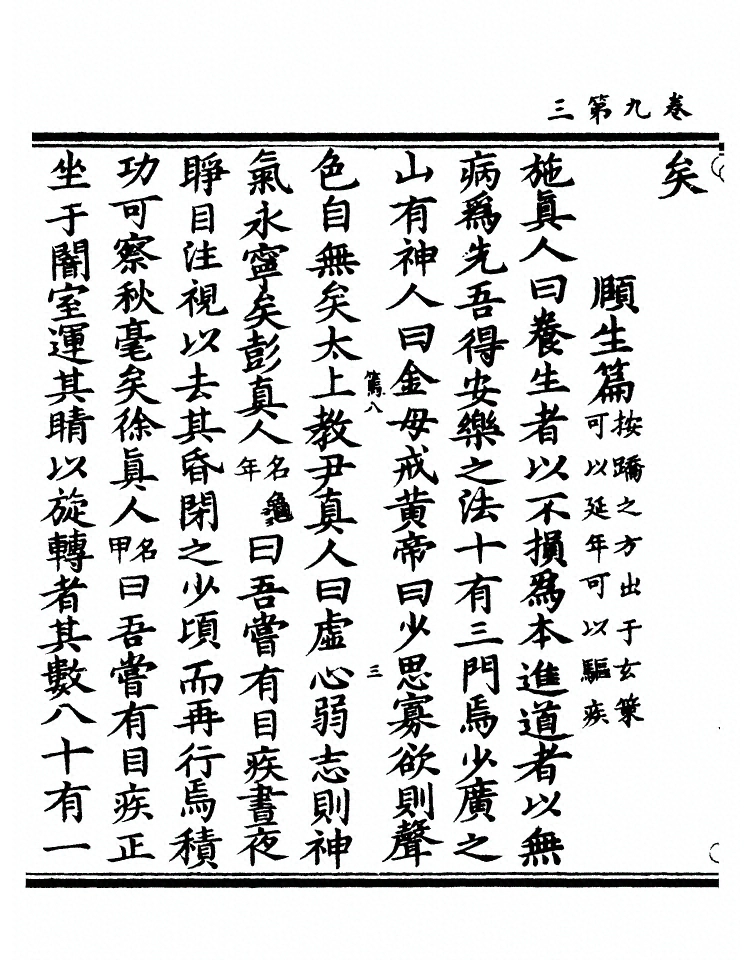 卷九第三
矣
頥生篇
按蹻之方出于玄策
可以延年可以驅疾
施眞人曰養生者以不損爲本進道者以無
病爲先吾得安樂之法十有三門焉少廣之
山有神人曰金母戒黄帝曰少思寡欲則聲
篤八 三
色自無矣太上教尹真人曰虛心弱志則神
氣永寧矣彭真人名龜年曰吾嘗有目疾晝夜
睜目注視以去其昏閉之少頃而再行焉積
功可察秋毫矣徐眞人名甲曰吾嘗有目疾正
坐于闇室運其睛以旋轉者其數八十有一